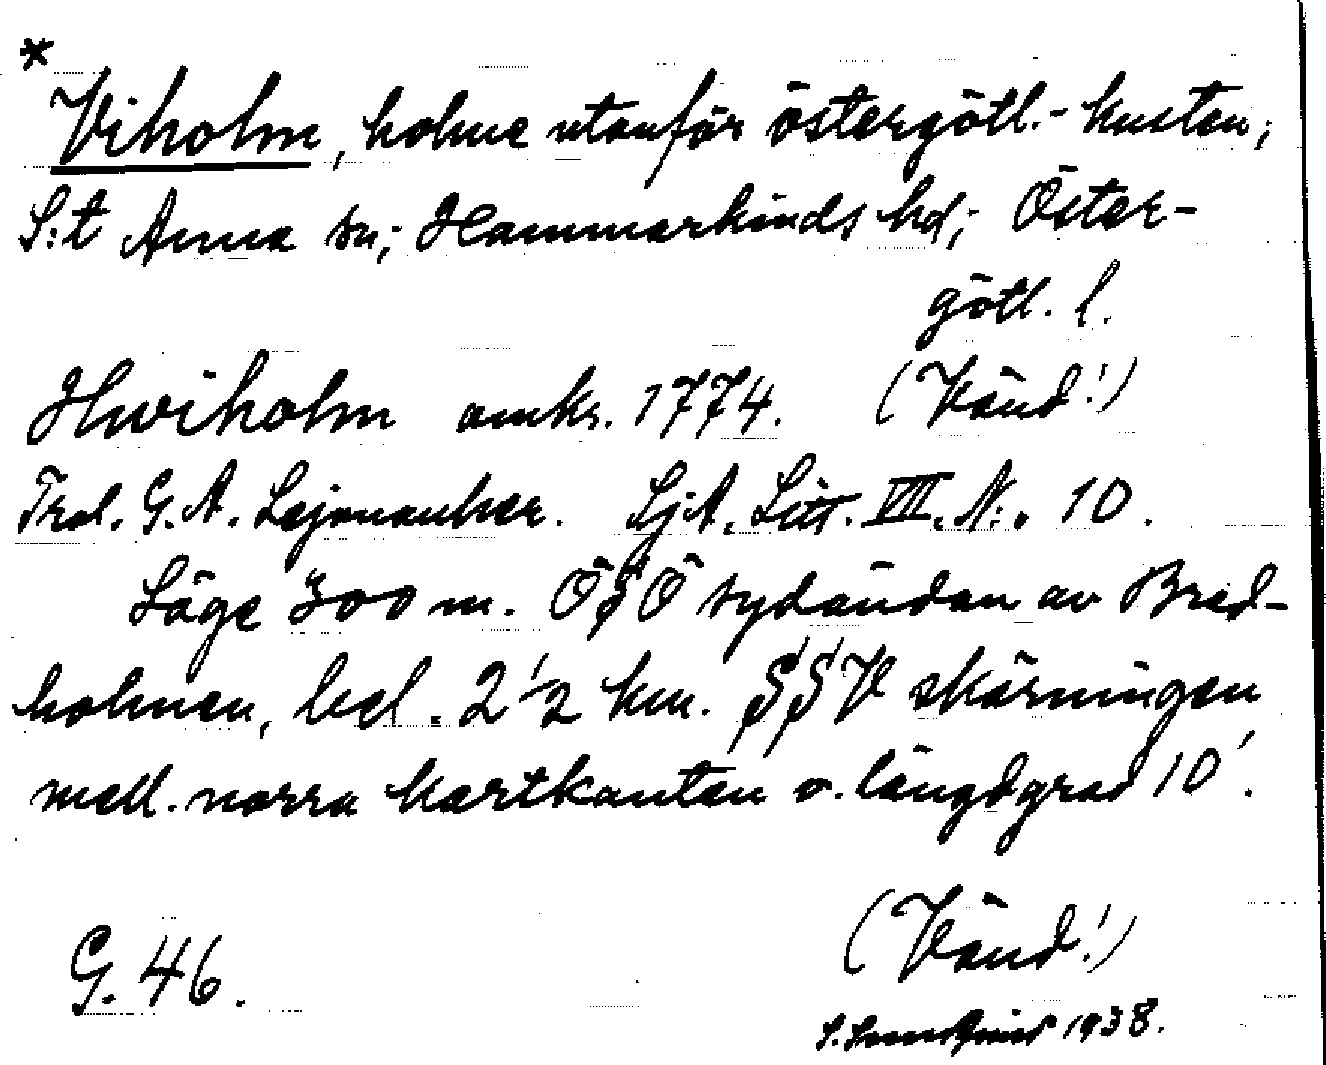 *
Viholm, holme utanför östergötl.-kusten,
S:t Anna sn; Hammarkinds hd; Öster-
götl. l.
Hwiholm omkr. 1774. (Vänd!)
Trol. G. A. Lejonanker. SjA. Litt. VIII. N:. 10.
Läge 300 m. ÖSÖ sydändan av Bred-
holmen, bel. 2 1/2 km. SSV skärningen
mell. norra kartkanten o. längdgrad 10'.
(Vänd!)
G. 46.
1938.